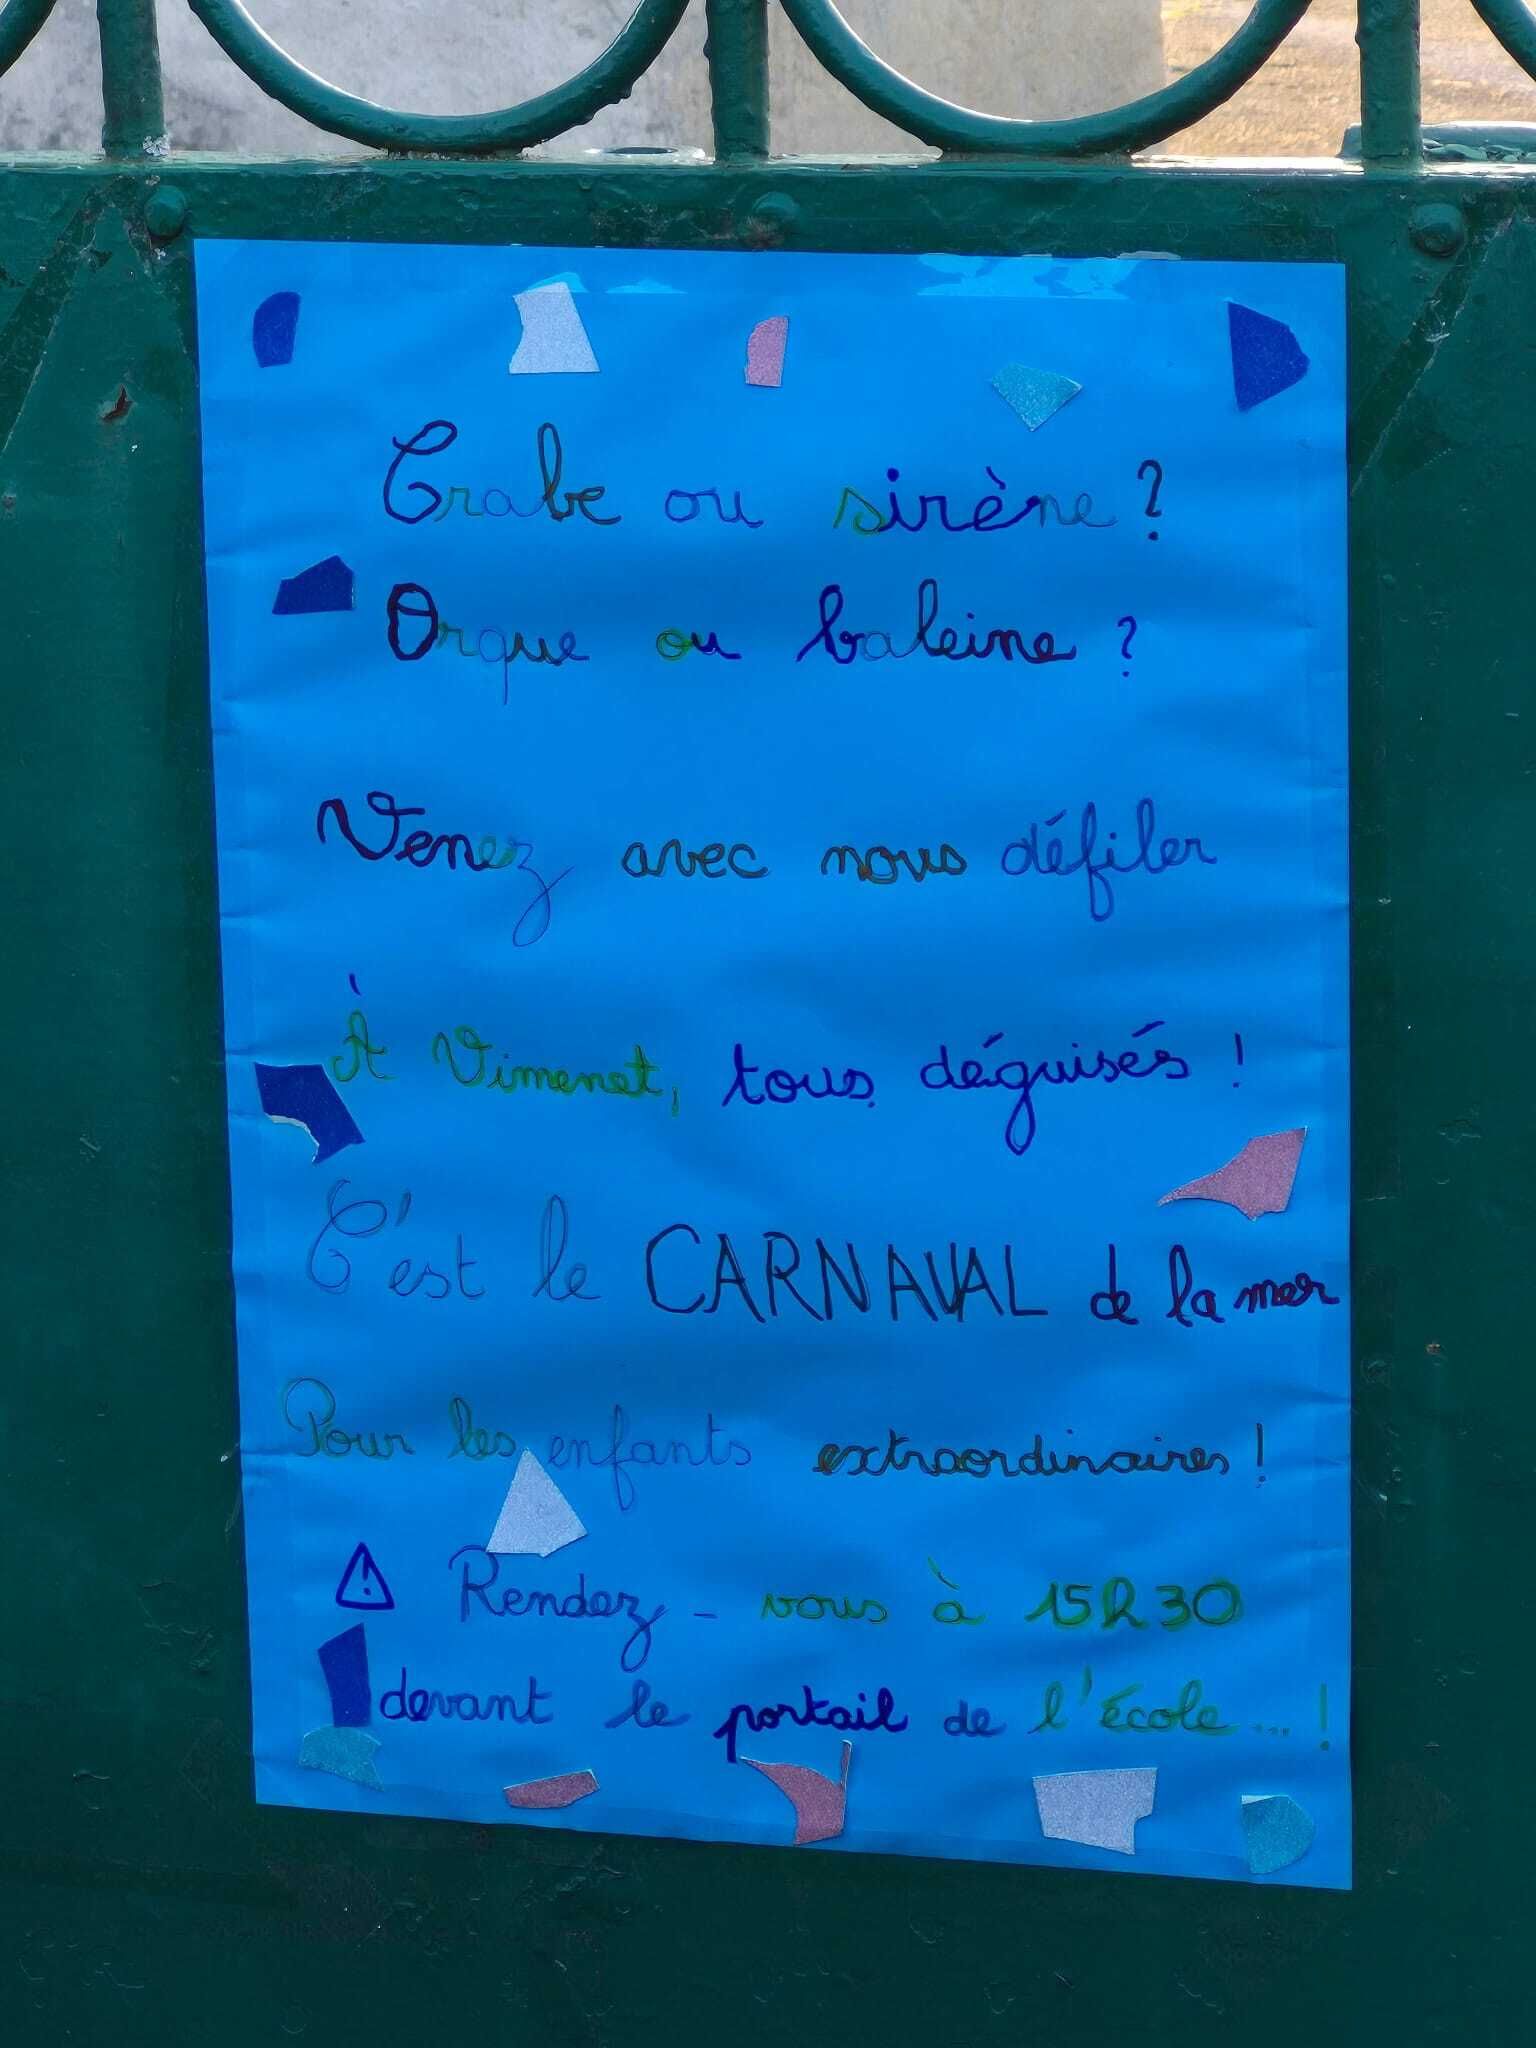 Crabe ou sirène ?
Orque ou baleine ?
Venez avec nous défiler
À Vimenet, tous déguisés !
C'est le CARNAVAL de la mer
Pour les enfants extraordinaires !
⚠ Rendez-vous à 15h30
devant le portail de l'école... !